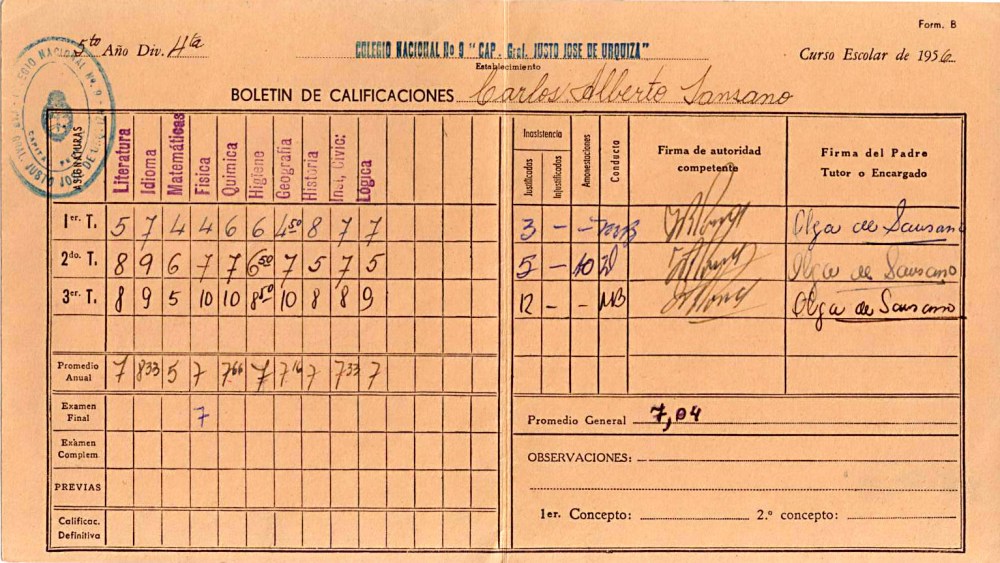 Form. B
5to Año Div. 4ta
COLEGIO NACIONAL No 9 "CAP. Gral. JUSTO JOSE DE URQUIZA"
Establecimiento
Curso Escolar de 1956
BOLETIN DE CALIFICACIONES Carlos Alberto Sansano
ASIGNATURAS Literatura Idioma Matemáticas Física Quimica Higiene Geografía Historia Inst, Civic: Lógica
Inasistencia
Justificadas Injustificadas Amonestaciones Conducto
Firma de autoridad competente
Firma del Padre Tutor o Encargado
1er. T. 5 7 4 4 6 6 4.50 8 7 7 3 - - MB Olga de Sansano
2do. T. 8 9 6 7 7 6.50 7 5 7 5 5 - 10 Olga de Sansano
3er. T. 8 9 5 10 10 8.50 10 8 8 9 12 - - MB Olga de Sansano
Promedio Anual 7 8.33 5 7 7.66 7 7.16 7 7.33 7
Examen Final 7
Promedio General 7,04
Exàmen Complem
OBSERVACIONES:
PREVIAS
1er. Concepto: 2.º concepto:
Calificac. Definitiva